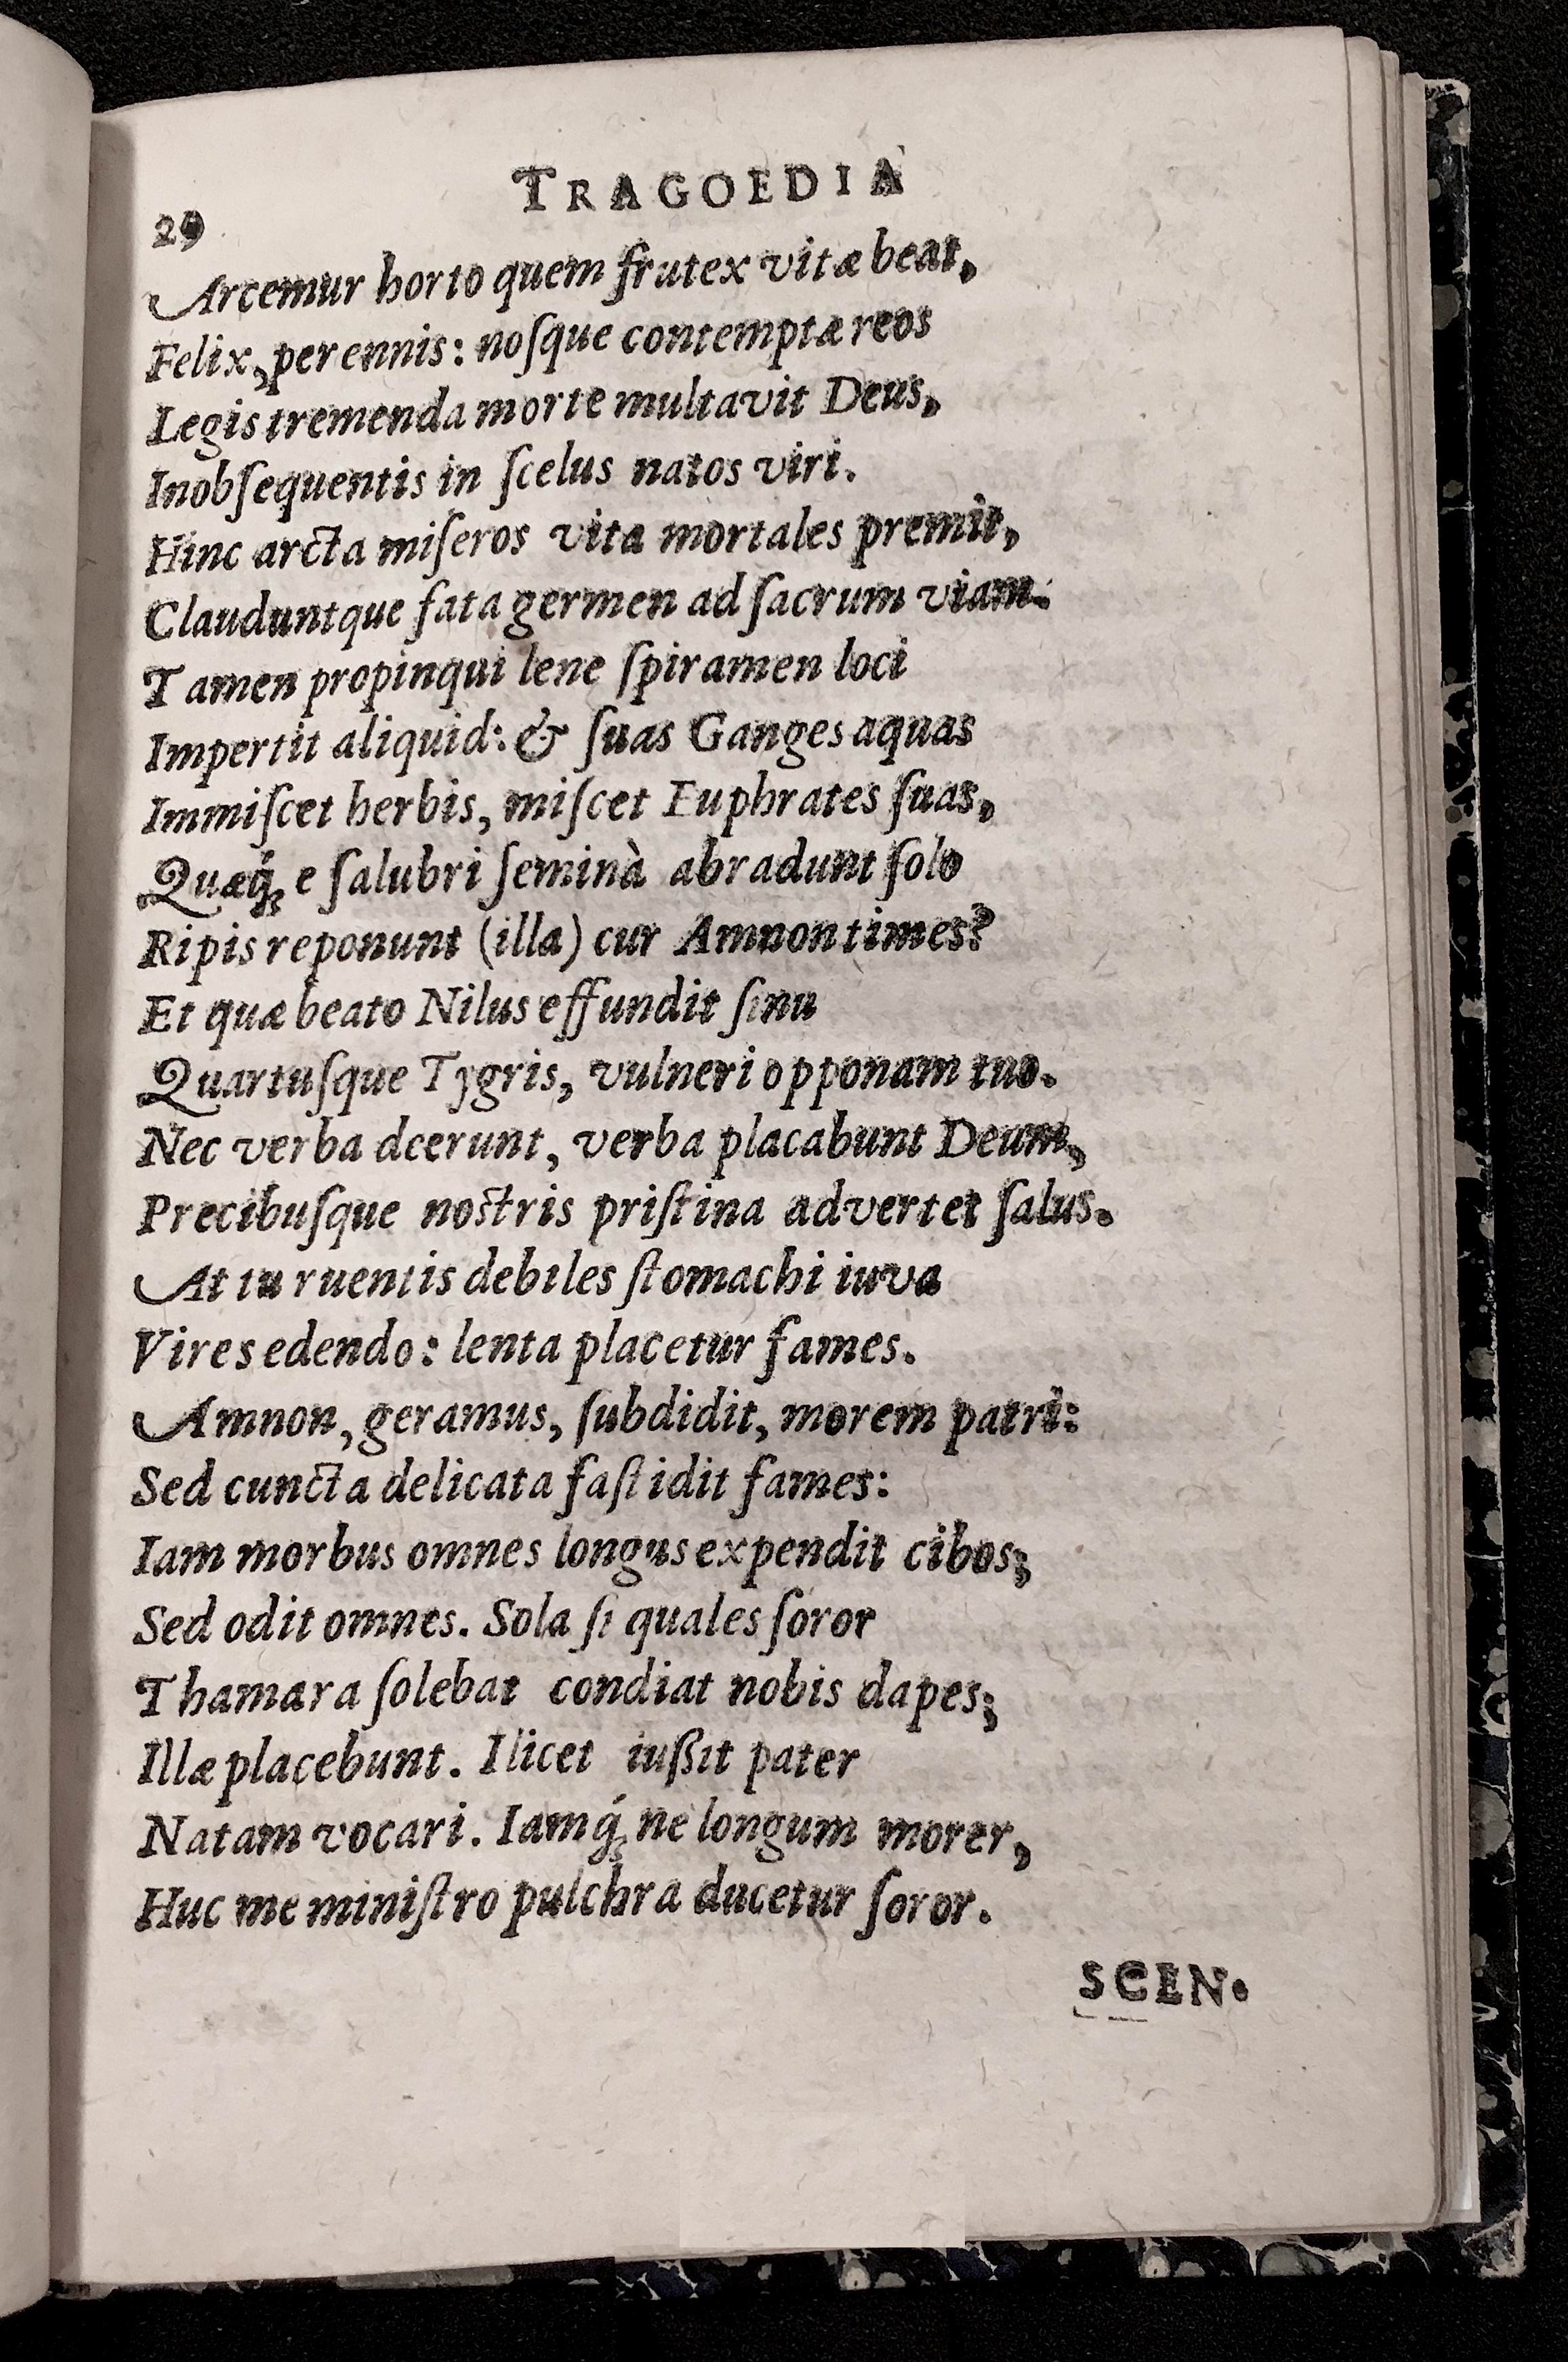 TRAGOEDIA
29
Arcemur horto quem frutex vitæ beat,
Felix, perennis: noſque contemptæ reos
Legis tremenda morte multavit Deus,
Inobſequentis in ſcelus natos viri.
Hinc arcta miſeros vita mortales premit,
Clauduntque fata germen ad ſacrum viam.
Tamen propinqui lene ſpiramen loci
Impertit aliquid: & ſuas Ganges aquas
Immiſcet herbis, miſcet Euphrates ſuas,
Quæq́; e ſalubri ſeminà abradunt ſolo
Ripis reponunt (illa) cur Amnon times?
Et quæ beato Nilus effundit ſinu
Quartuſque Tygris, vulneri opponam tuo.
Nec verba dcerunt, verba placabunt Deum,
Precibuſque nostris priſtina advertet ſalus.
At tu ruentis debiles ſtomachi iuva
Vires edendo: lenta placetur fames.
Amnon, geramus, ſubdidit, morem patri:
Sed cuncta delicata faſtidit fames:
Iam morbus omnes longus expendit cibos;
Sed odit omnes. Sola ſi quales ſoror
Thamara ſolebat condiat nobis dapes;
Illæ placebunt. Ilicet iuſſit pater
Natam vocari. Iamq́; ne longum morer,
Huc me miniſtro pulchra ducetur ſoror.
SCEN.